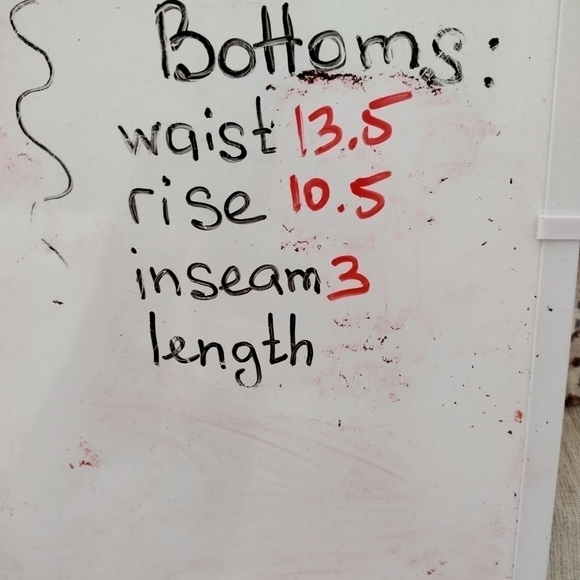 Bottoms:
waist 13.5
rise 10.5
inseam 3
length